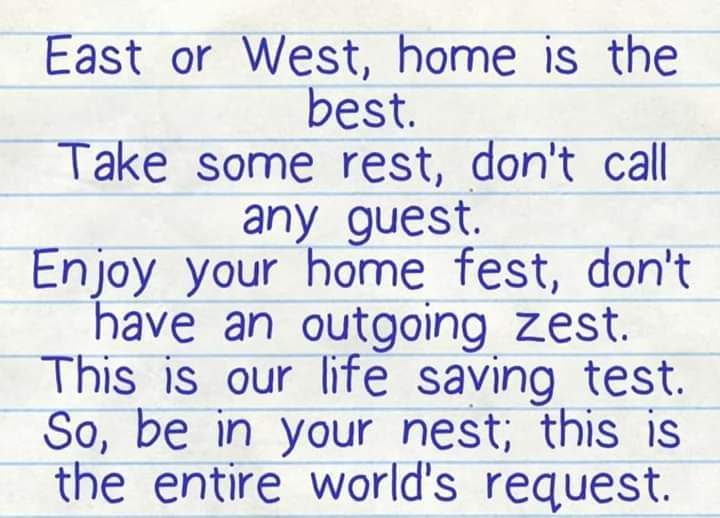 East or West, home is the
best.
Take some rest, don't call
any guest.
Enjoy your home fest, don't
have an outgoing zest.
This is our life saving test.
So, be in your nest; this is
the entire world's request.